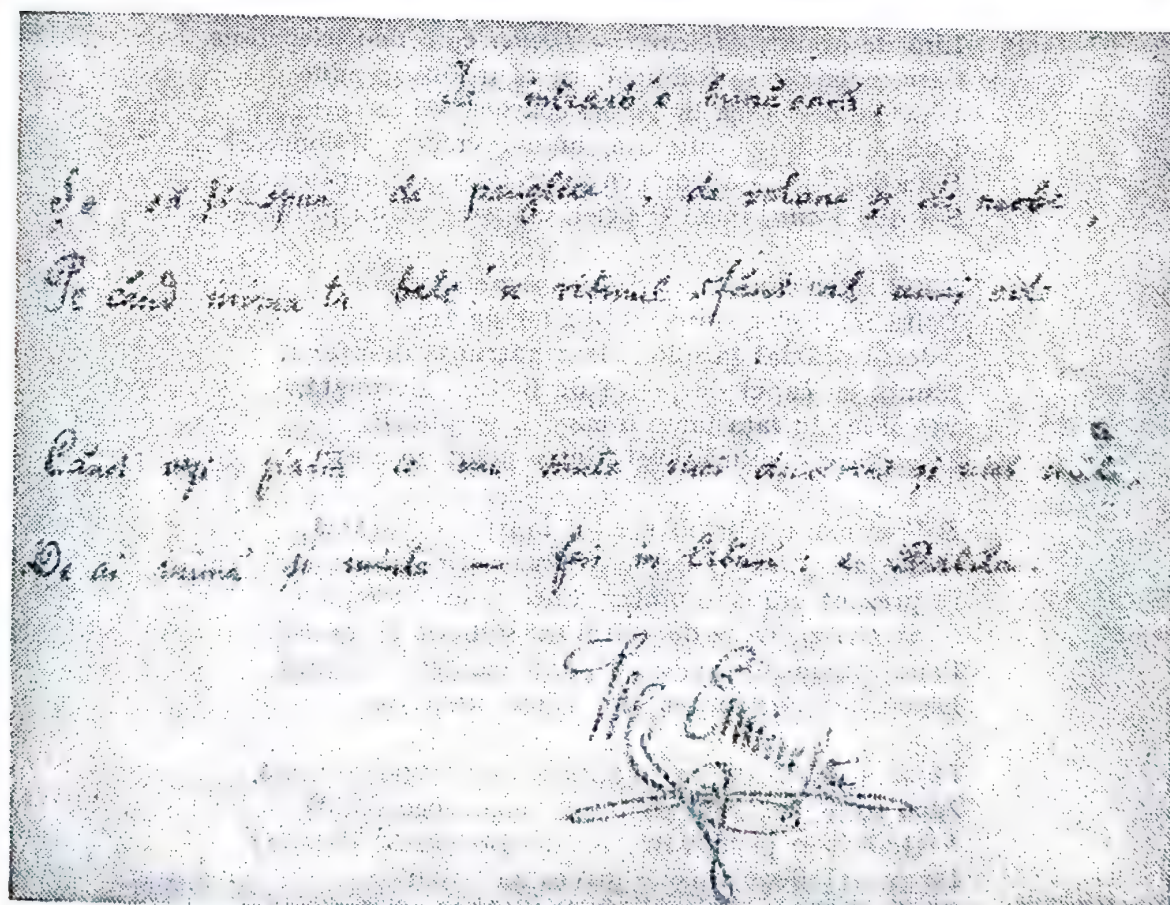 bunăoară,
să spui de panglice, de volane și de mode,
Pe când inima ta bate 'n ritmul sfânt al unei ode
Când vezi piatra ce nu simte nici durerea și nici mila,
De ai inimă și minte — feri în lături; e Dalila.
M. Eminescu